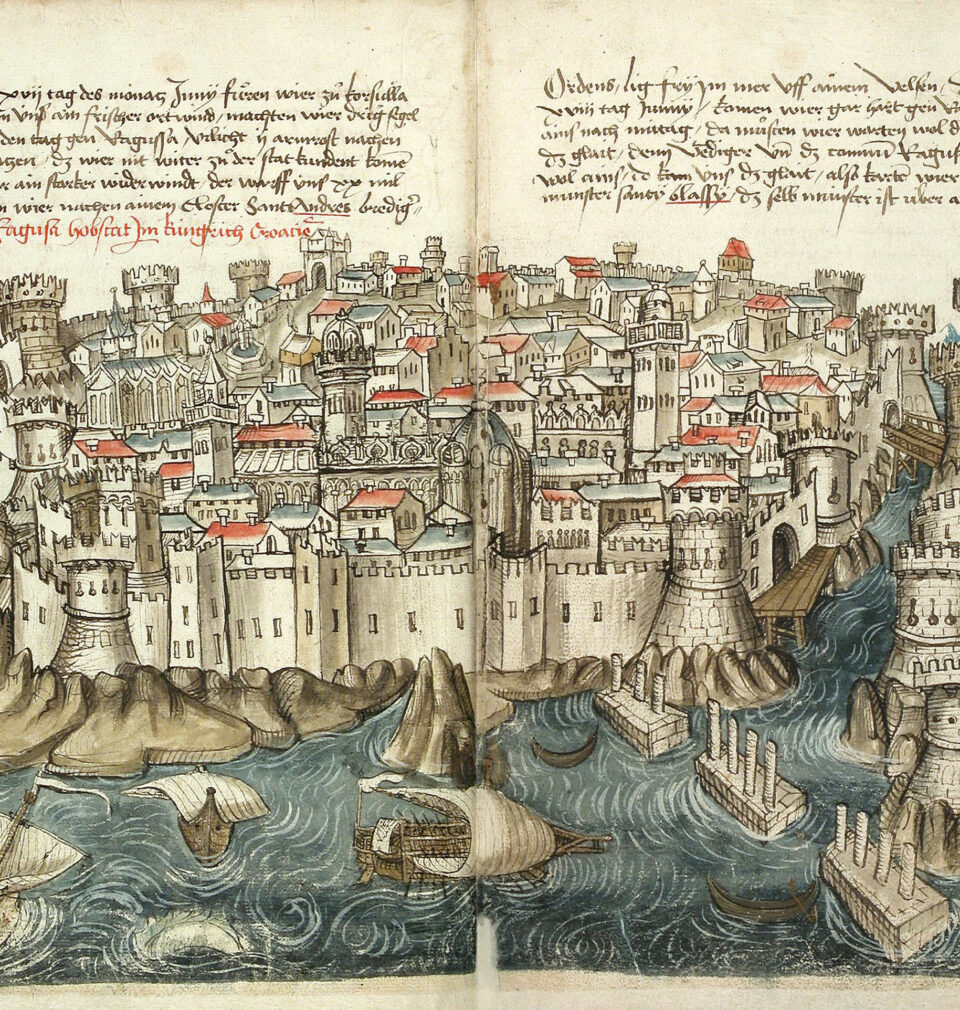 xvij tag des monatz Junij fůren wier zů korsůla
vnß ain frischer ort wind / machten wier segel
den tag gen Ragussa / vilicht ij armrost nachen
dz wier nit witer zů der stat kundent kome
ain starker wider windt / der warff vns xx mil
wier nachen ainem Closter Sant Andres bredig
Ragusa hobstat Jm kungrich Croacie
Ordens / lig frÿ Jm mer vff ainem velsen /
xviii tag Junÿ / komen wier gar hart gen
ains nach mittag / da můsten wier warten wol
dz glait / denn Vediger vn dz comun Ragus
wol ains / do kam vns dz glait / also karte wier
munster sant blassÿ / dz selb münster ist über a